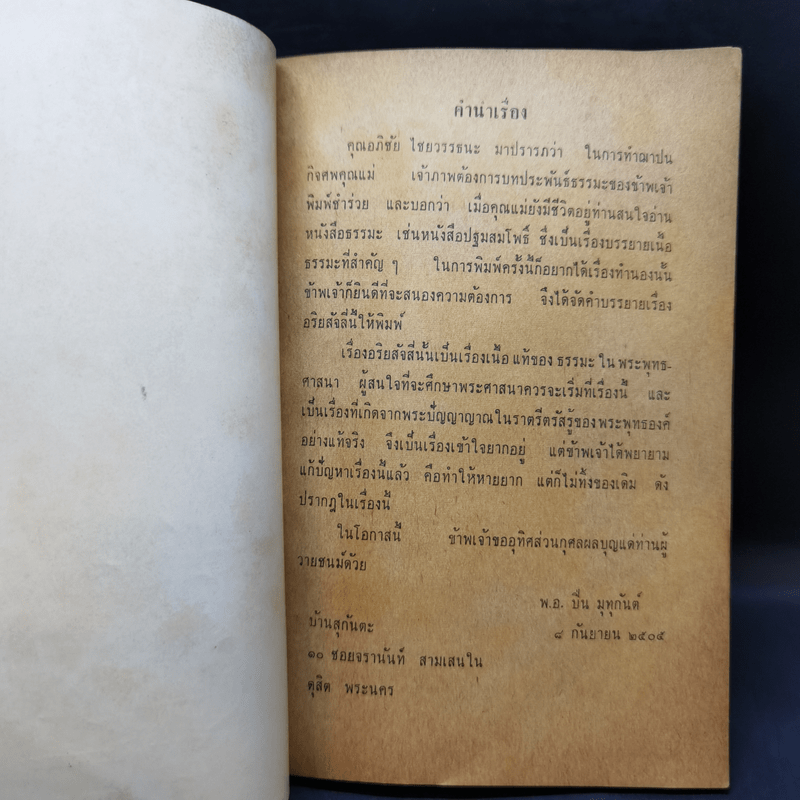 คำนำเรื่อง
คุณอภิชัย ไชยวรรธนะ มาปรารภว่า ในการทำฌาปน
กิจศพคุณแม่ เจ้าภาพต้องการบทประพันธ์ธรรมะของข้าพเจ้า
พิมพ์ชำร่วย และบอกว่า เมื่อคุณแม่ยังมีชีวิตอยู่ท่านสนใจอ่าน
หนังสือธรรมะ เช่นหนังสือปฐมสมโพธิ์ ซึ่งเป็นเรื่องบรรยายเนื้อ
ธรรมะที่สำคัญ ๆ ในการพิมพ์ครั้งนี้ก็อยากได้เรื่องทำนองนั้น
ข้าพเจ้าก็ยินดีที่จะสนองความต้องการ จึงได้จัดคำบรรยายเรื่อง
อริยสัจสี่นี้ให้พิมพ์
เรื่องอริยสัจสี่นั้นเป็นเรื่องเนื้อ แท้ของ ธรรมะ ใน พระพุทธ-
ศาสนา ผู้สนใจที่จะศึกษาพระศาสนาควรจะเริ่มที่เรื่องนี้ และ
เป็นเรื่องที่เกิดจากพระปัญญาญาณในราตรีตรัสรู้ของพระพุทธองค์
อย่างแท้จริง จึงเป็นเรื่องเข้าใจยากอยู่ แต่ข้าพเจ้าได้พยายาม
แก้ปัญหาเรื่องนี้แล้ว คือทำให้หายยาก แต่ก็ไม่ทิ้งของเดิม ดัง
ปรากฏในเรื่องนี้
ในโอกาสนี้ ข้าพเจ้าขออุทิศส่วนกุศลผลบุญแด่ท่านผู้
วายชนม์ด้วย
พ.อ. ปิ่น มุทุกันต์
บ้านสุกันตะ
๘ กันยายน ๒๕๐๕
๑๐ ซอยจรานันท์ สามเสนใน
ดุสิต พระนคร